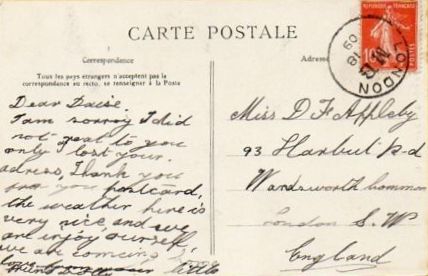 CARTE POSTALE
Correspondance
Tous les pays étrangers n'acceptent pas la
correspondance au recto, se renseigner à la Poste
Adresse
REPUBLIQUE FRANÇAISE
10
LONDON
18
09
Dear Daise.
I am sorry I did
not to you
only I lost your
adress, Thank you
for you postcard,
the weather here is
very nice, and we
are enjoy ourself,
we are comeing
Miss D F Appleby
93 Harbut Rd
Wandsworth Common
London S. W
England